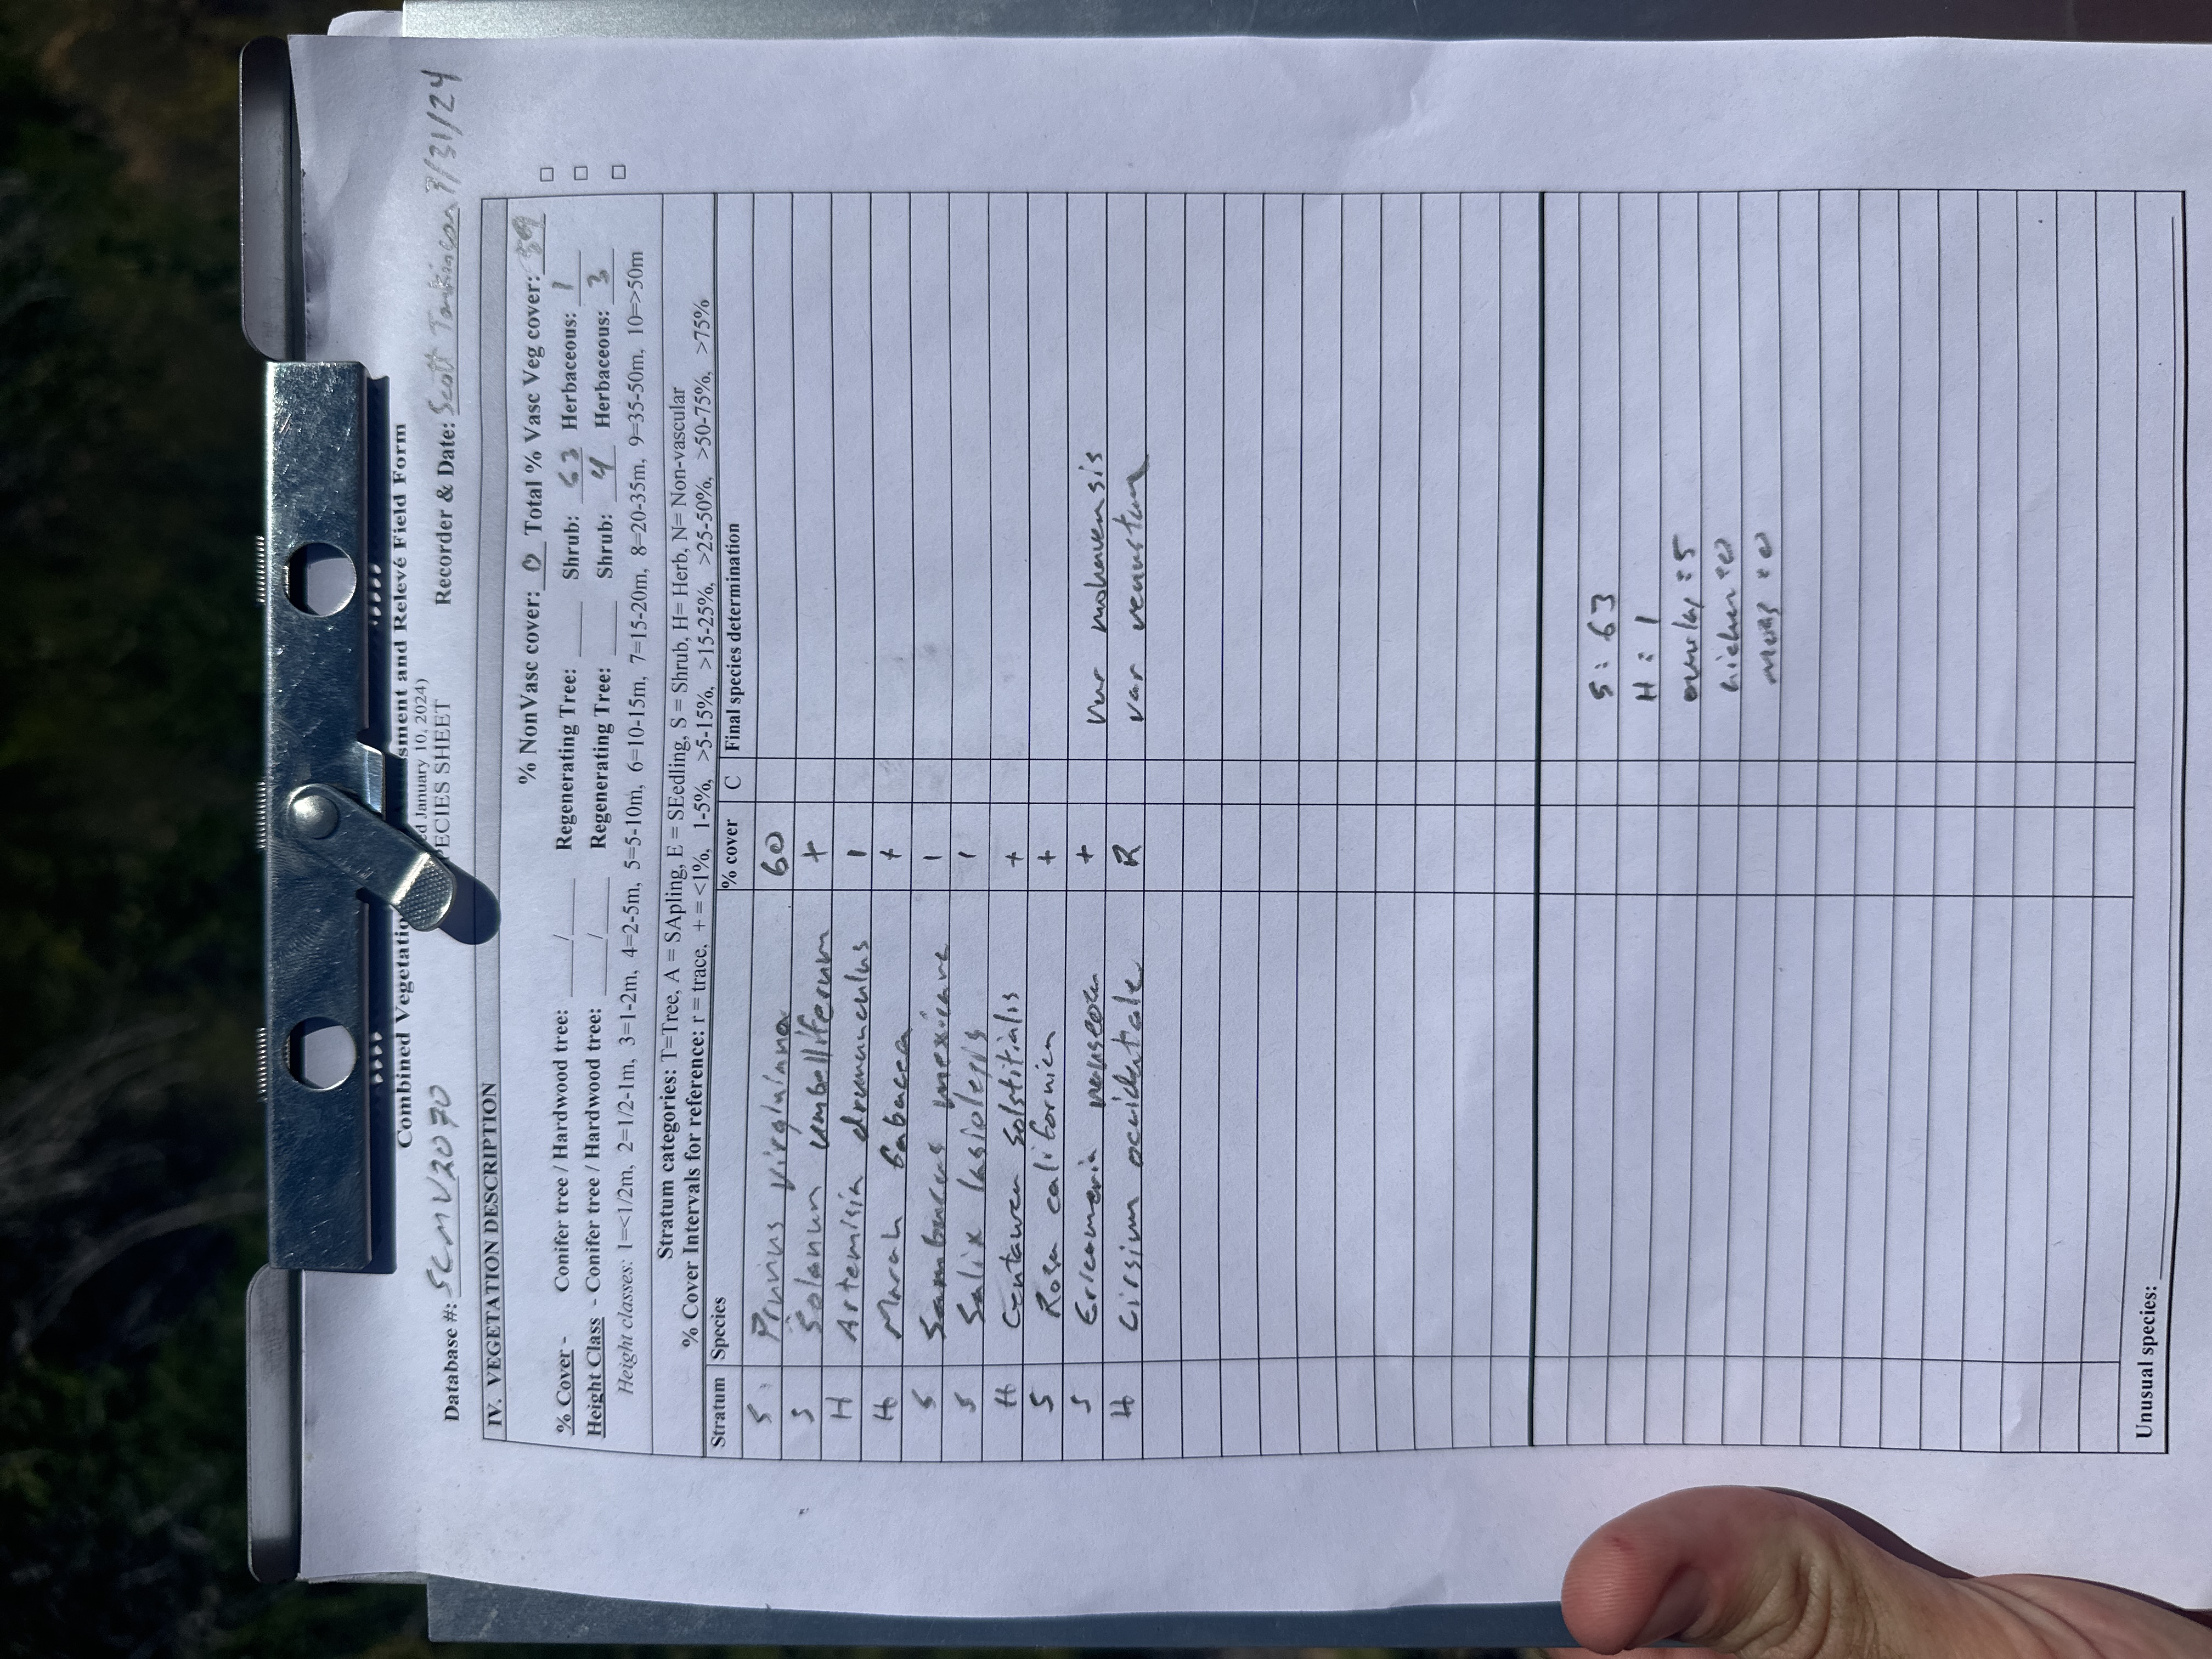 Combined Vegetatio sment and Relevé Field Form
ed January 10, 2024)
PECIES SHEET
Database #: SCMV2070 Recorder & Date: Scott 7/31/24
IV. VEGETATION DESCRIPTION
% NonVasc cover: 0 Total % Vasc Veg cover: 59 □
% Cover - Conifer tree / Hardwood tree: ____/____ Regenerating Tree: ____ Shrub: 63 Herbaceous: 1 □
Height Class - Conifer tree / Hardwood tree: ____/____ Regenerating Tree: ____ Shrub: 4 Herbaceous: 3 □
Height classes: 1=<1/2m, 2=1/2-1m, 3=1-2m, 4=2-5m, 5=5-10m, 6=10-15m, 7=15-20m, 8=20-35m, 9=35-50m, 10=>50m
Stratum categories: T=Tree, A = SApling, E = SEedling, S = Shrub, H= Herb, N= Non-vascular
% Cover Intervals for reference: r = trace, + = <1%, 1-5%, >5-15%, >15-25%, >25-50%, >50-75%, >75%
Stratum Species % cover C Final species determination
S Prunus virginiana 60
S Solanum umbelliferum +
H Artemisia dracunculus 1
H Marah fabacea +
S Sambucus mexicana 1
S Salix lasiolepis 1
H Centaurea solstitialis +
S Rosa californica +
S Ericameria nauseosa + var mohavensis
H Cirsium occidentale R var venustum
S: 63
H: 1
overlap: 5
lichen: 0
moss: 0
Unusual species: